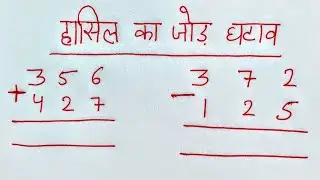 हासिल का जोड़ घटाव
3 5 6
+ 4 2 7
3 7 2
- 1 2 5